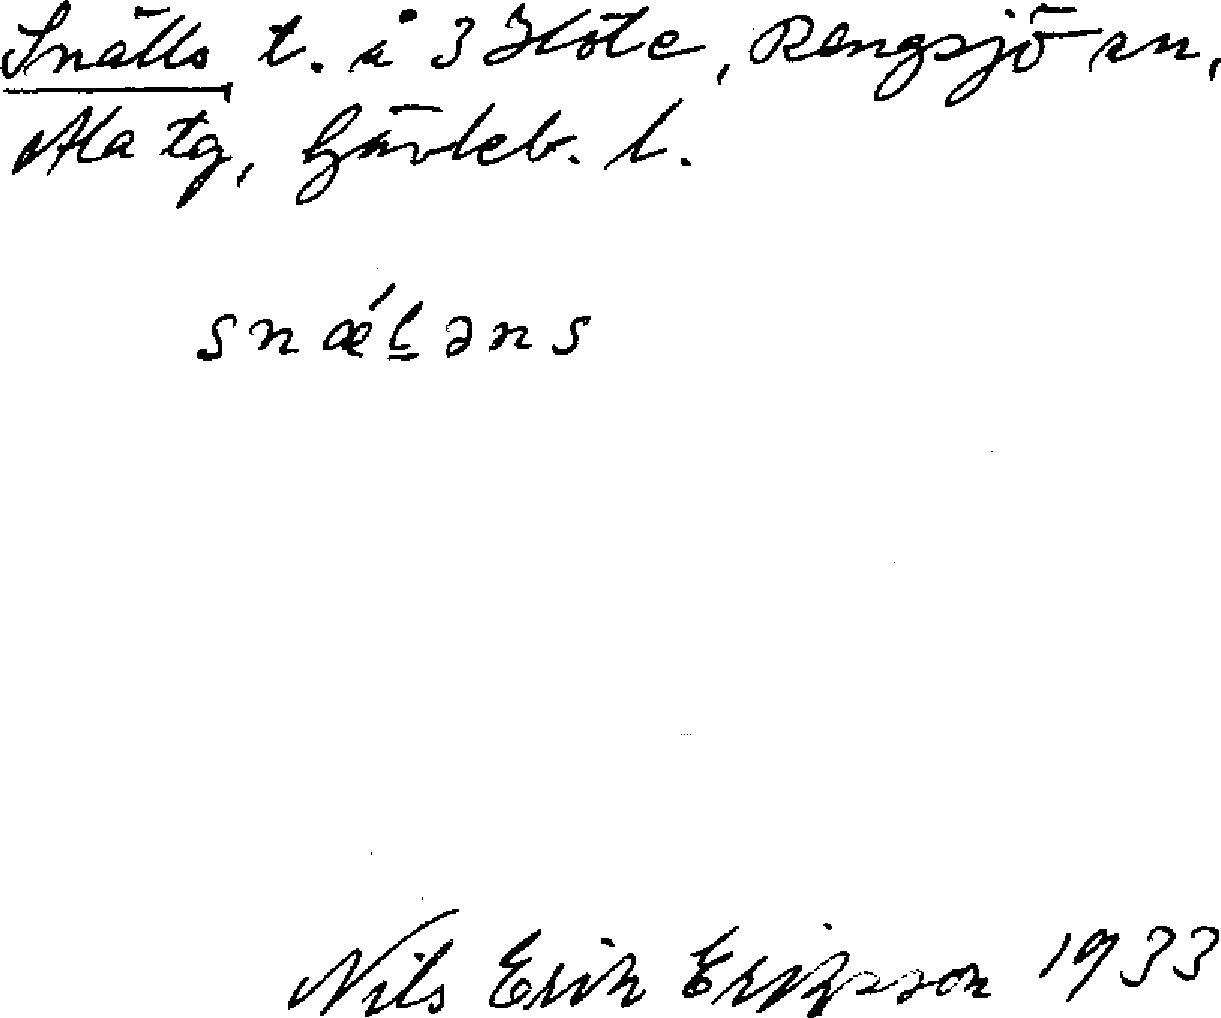 Snälls t. å 3 Höle, Rengsjö sn,
Ala tg, Gävleb. l.
snǽl̲əns
Nils Erik Eriksson 1933